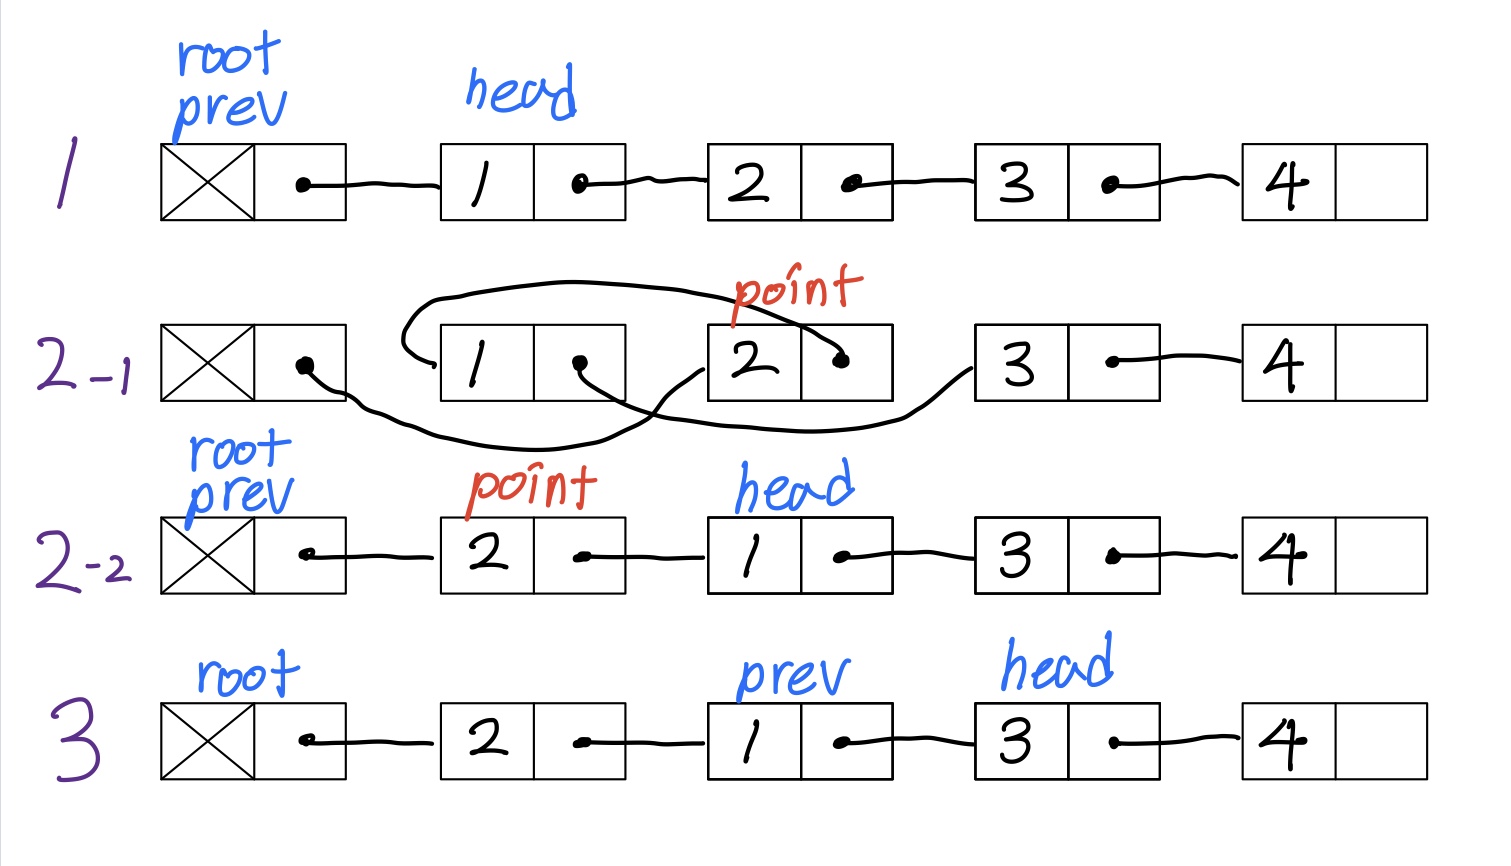 root
prev head
1 1 2 3 4
point
2-1 1 2 3 4
root
prev point head
2-2 2 1 3 4
root prev head
3 2 1 3 4